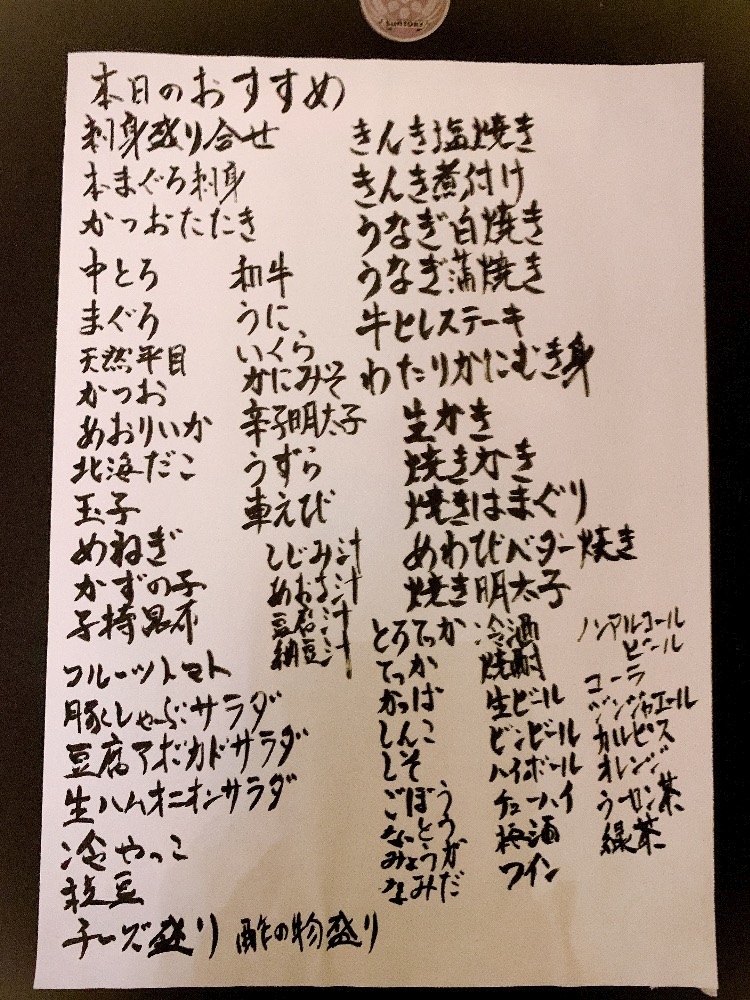 SUNTORY
本日のおすすめ
刺身盛り合せ
本まぐろ刺身
かつおたたき
中とろ
まぐろ
天然平目
かつお
あおりいか
北海だこ
玉子
めねぎ
かずの子
子持昆布
フルーツトマト
豚しゃぶサラダ
豆腐アボカドサラダ
生ハムオニオンサラダ
冷やっこ
枝豆
チーズ盛り 酢の物盛り
和牛
うに
いくら
かにみそ
辛子明太子
うずら
車えび
しじみ汁
あおさ汁
豆腐汁
納豆汁
きんき塩焼き
きんき煮付け
うなぎ白焼き
うなぎ蒲焼き
牛ヒレステーキ
わたりかにむき身
生かき
焼きかき
焼きはまぐり
あわびバター焼き
焼き明太子
とろてっか
てっか
かっぱ
しんこ
しそ
ごぼう
なっとう
みょうが
なみだ
冷酒
焼酎
生ビール
ビンビール
ハイボール
チューハイ
梅酒
ワイン
ノンアルコール
ビール
コーラ
ジンジャエール
カルピス
オレンジ
ウーロン茶
緑茶